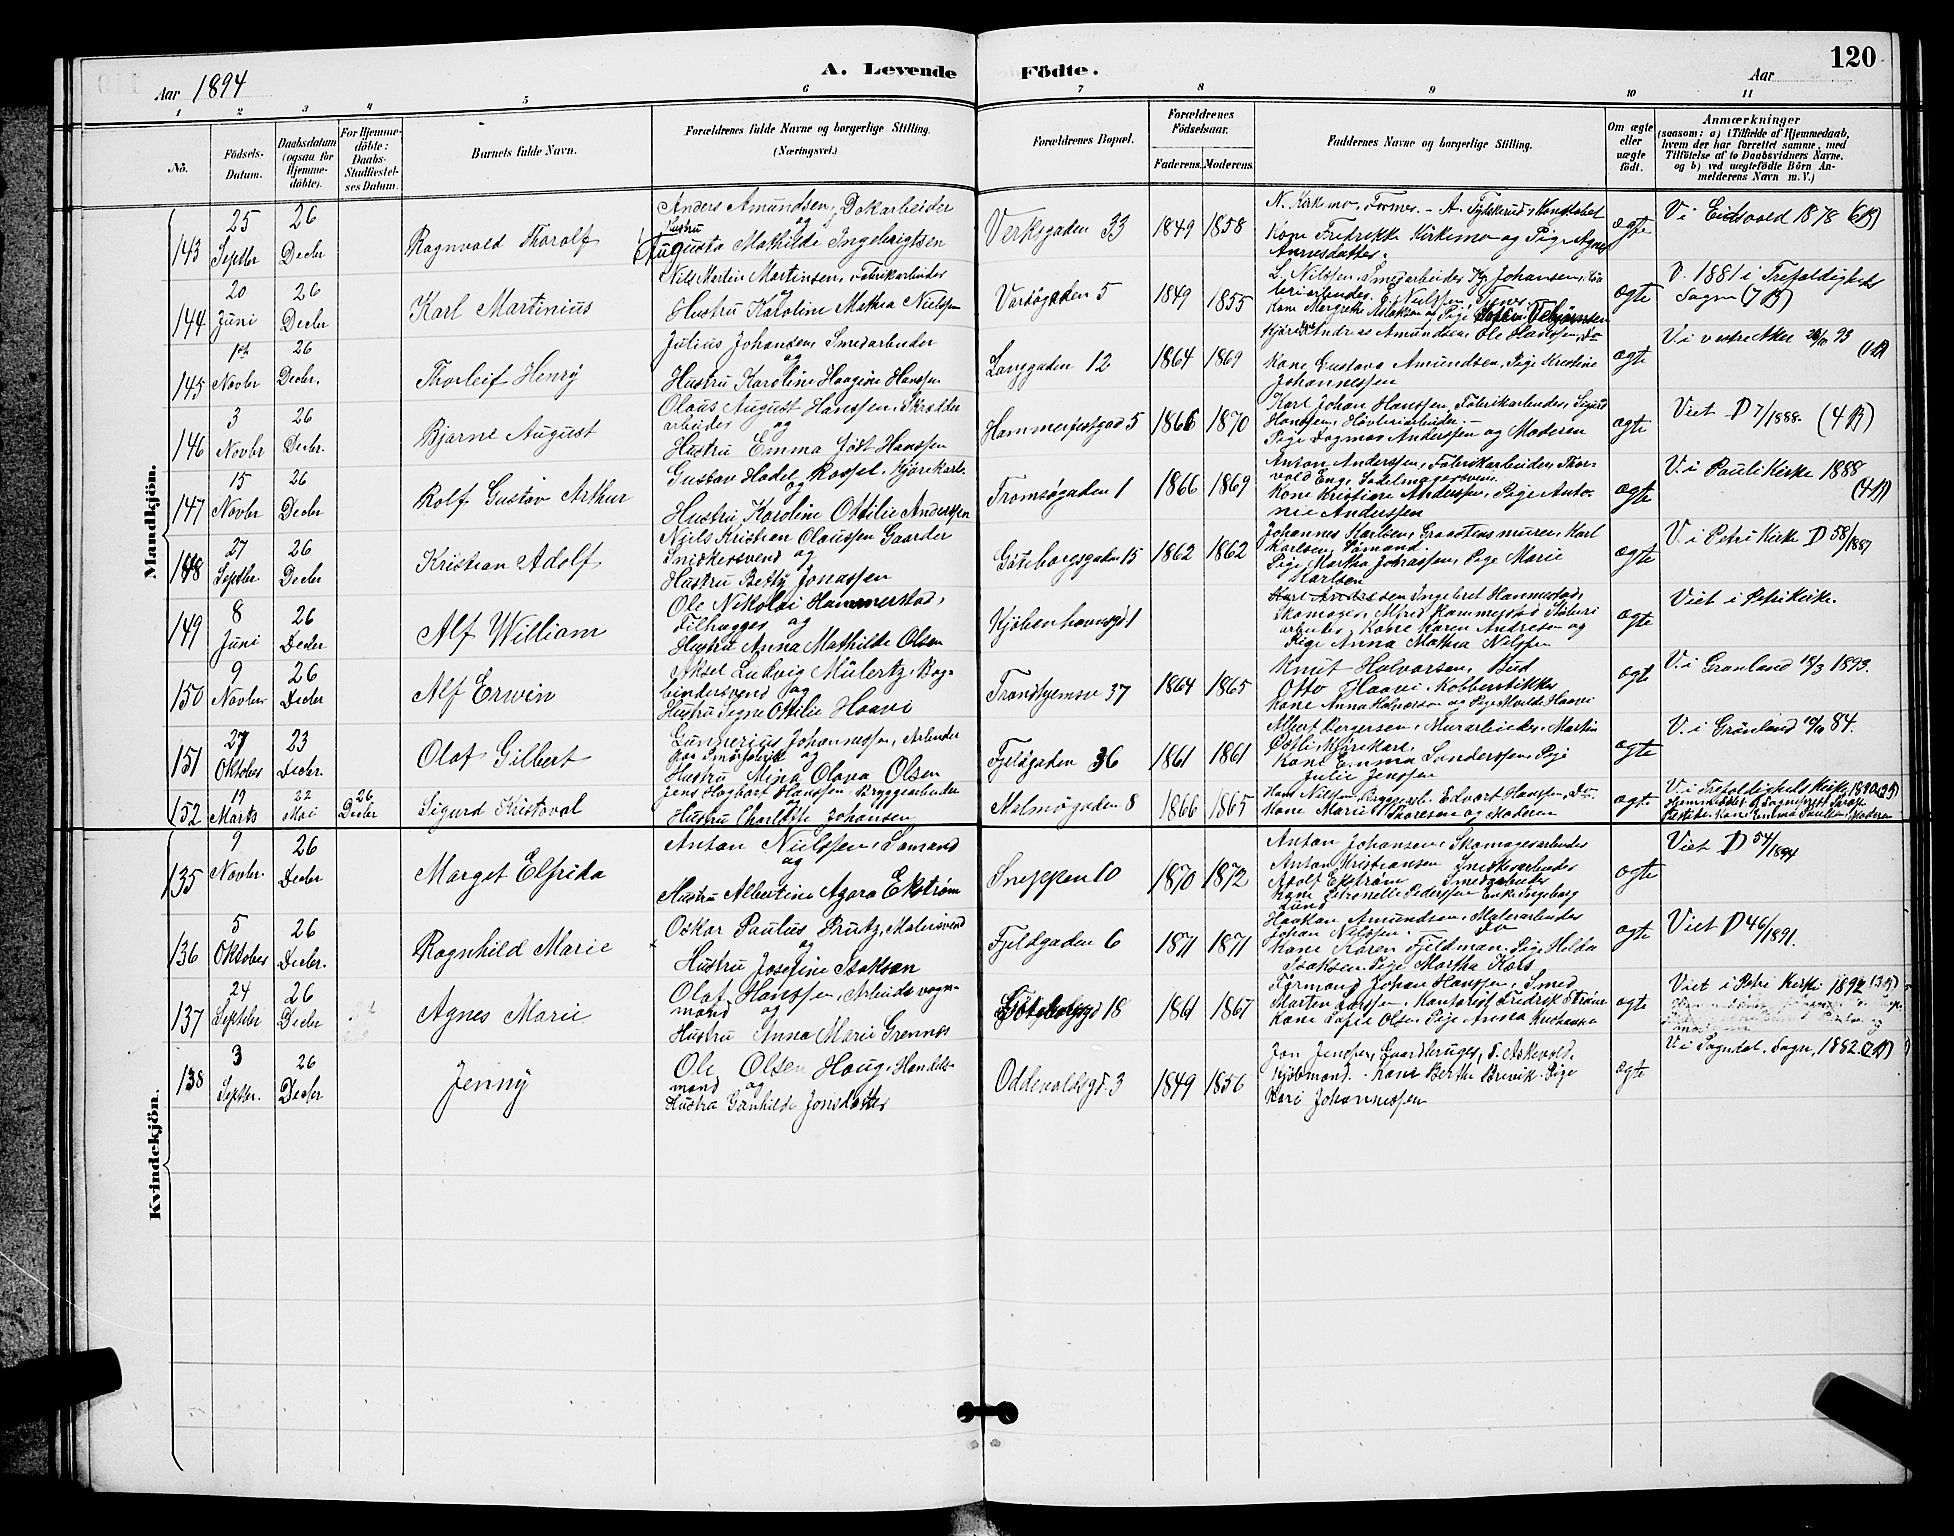 A. Levende Födte.
120
Aar 1894
Aar
1 2 3 4 5 6 7 8 9 10 11
No.
Födsels-Datum.
Daabsdatum (ogsaa for Hjemme-döbte).
For Hjemme-döbte: Daabs-Stadfæstel-ses Datum.
Barnets fulde Navn.
Forældrenes fulde Navne og borgerlige Stilling. (Næringsvei.)
Forældrenes Bopæl.
Forældrenes Födselsaar.
Faderens. Moderens.
Faddernes Navne og borgerlige Stilling.
Om ægte eller uægte födt.
Anmærkninger
(saasom: a) i Tilfælde af Hjemmedaab,
hvem der har forrettet samme, med
Tilföielse af to Daabsvidners Navne,
og b) ved uægtefödte Börn An-
melderens Navn m. V.)
Mandkjön.
143 25 Septbr 26 Decbr Ragnvald Thoralf
Anders Amundsen, Dokarbeider
og
Hustru Augusta Mathilde Ingebrigtsen
Verksgaden 33 1849 1858
N. Kirkemo, Former. - A. Konstabel
Kone Fredrikke Kirkemo og Pige Agnes
Annesdatter.
ægte
V. i Eidsvold 1878 (6B)
144 20 Juni 26 Decbr Karl Martinius
Nils Martin Martinsen, Fabrikarbeider
og
Hustru Karoline Mathea Nielsen
Vardøgaden 5 1849 1855
L. Nilssen, Smedarbeider,
Kone Margrethe
ægte
V. 1881 i Trefoldigheds
Sogn (7B)
145 1ste Novbr 26 Decbr. Thorleif Henry
Julius Johansen Smedarbeider
og
Hustru Karoline Haagine Hanssen
Langgaden 12 1864 1869
Andreas Amundsen, Ole Hanssen, Do
Kone Gustava Amundsen, Pige Kristine
Johannessen
ægte
V. i vestre Aker 93
(1B)
146 3 Novbr 26 Decbr. Bjarne August
Olaus August Hanssen, Skrædder
arbeider og
Hustru Emma Hanssen
Hammerfestgad 5 1866 1870
Karl Johan Hanssen, Fabrikarbeider, Sigurd
Hanssen, Høvleriarbeider. -
Pige Dagmar Anderssen og Moderen
ægte
Viet D 7/1888. (4B)
147 15 Novbr 26 Decbr Rolf Gustav Arthur
Gustav Hadel Rosset, Kjørekarl
og
Hustru Karoline Ottilie Anderssen
Tromsøgaden 1 1866 1869
Anton Anderssen, Fabrikarbeider, Thor-
vald Eng, Sadelmagersvend
Kone Kristiane Anderssen, Pige Anto-
nie Anderssen
ægte
V. i Pauli Kirke 1888
(4B)
148 27 Septbr. 26 Decbr Kristian Adolf
Niels Kristian Olaussen Gaarder
Snidkersvend og
Hustru Betty Jonassen
Gøteborgsgaden 15 1862 1862
Johannes Karlsen, Graastensmurer, Karl
Karlsen, Sømand.
Pige Martha Johassen, Pige Marie
Karlsen
ægte
V. i Petri Kirke D 58/1887
149 8 Juni 26 Decbr Alf William
Ole Nikolai Hammerstad,
Filhugger og
Hustru Anna Mathilde Olsen
Kjøbenhavnsgd 1
Ingebret Hammerstad,
Skomager, Alfred Hammerstad
arbeider, Kone Karen Andresen og
Pige Anna Mathea Nilssen
ægte
Viet i Petrikirke.
150 9 Novbr 26 Decbr Alf Erwin
Aksel Ludvig Mülertz, Bog-
bindersvend og
Hustru Signe Ottilie Haavi
Trondhjemsv 37 1864 1865
Knut Halvorsen, Bud
Otto Haavi, Kobberstikker
Kone Anna Halvorsen og Pige Haavi
ægte
V. i Grønland 18/3 1893.
151 27 Oktober 23 Decbr. Olaf Gilbert
Gunnerius Johannessen, Arbeider
paa Smørfabrik og
Hustru Mina Olava Olsen
Fjeldgaden 36 1861 1861
Albert Bergersen, Murarbeider, Martin
Kjørekarl.
Kone Emma Sanderssen, Pige
Julie Jenssen
ægte
V. i Grønland 84.
152 19 Marts 22 Mai 26 Decbr Sigurd Kristoval
Jens Hagbart Hanssen, Bryggearbeider
Hustru Charlotte Johansen
Malmøgaden 8 1866 1865
Hans Nilssen, Bryggearb. Edvart Hanssen, Do
Kone Marie Thoresen og Moderen
ægte
V. i Trefoldigheds Kirke 1890
Kvindekjön.
135 9 Novbr. 26 Decbr Margot Elfrida
Anton Nielssen, Sømand
og
Hustru Albertine Agora Ekstrøm
Sneppen 10 1870 1872
Anton Johansen, Skomagerarbeider
Anton Kristiansen Snidkerarbeider
Adolf Ekstrøm Smedarbeider
Kone Petronelle Pederssen Enke Ingeborg
Lund
ægte
Viet D 54/1894
136 5 Oktober 26 Decbr. Ragnhild Marie
Oskar Paulus Prutz, Malersvend
og
Hustru Josefine Isaksen
Fjeldgaden 6 1871 1871
Haakon Amundsen, Malerarbeider
Johan Nilssen. - Do
Kone Karen Fjeldman, Pige Hilda
Isaksen, Pige Martha Kors
ægte
Viet D 46/1891.
137 24 Septbr 26 Decbr Agnes Marie
Olaf Hanssen, Arbeidsvogn-
mand og
Hustru Anna Marie Grennes
Gøteborggd 18 1861 1867
Formand Johan Hanssen, Smed
Martin Larssen, Kontorist Fredrik Strøm
Kone Sofie Olsen Pige Anna Kristiansen
ægte
Viet i Petri Kirke 1892
138 3 Septbr. 26 Decbr Jenny
Ole Olsen Haug, Handels-
mand og
Hustru Gunhilde Jonsdatter
Oddevaldsgd. 3 1849 1856
Jon Jenssen, Gaardbruger, T. Askevold,
Kjøbmand. - Kone Berthe Brevik. Pige
Kari Johannessen
ægte
V. i Sogndal, Sogn, 1882 (2B)